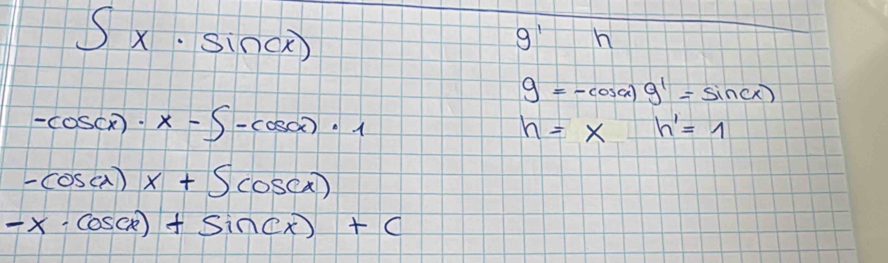 ∫ x · sin(x)
g' h
g = -cos(x) g' = sin(x)
-cos(x) · x - ∫ -cos(x) · 1
h = x h' = 1
-cos(x) x + ∫ cos(x)
-x · cos(x) + sin(x) + C